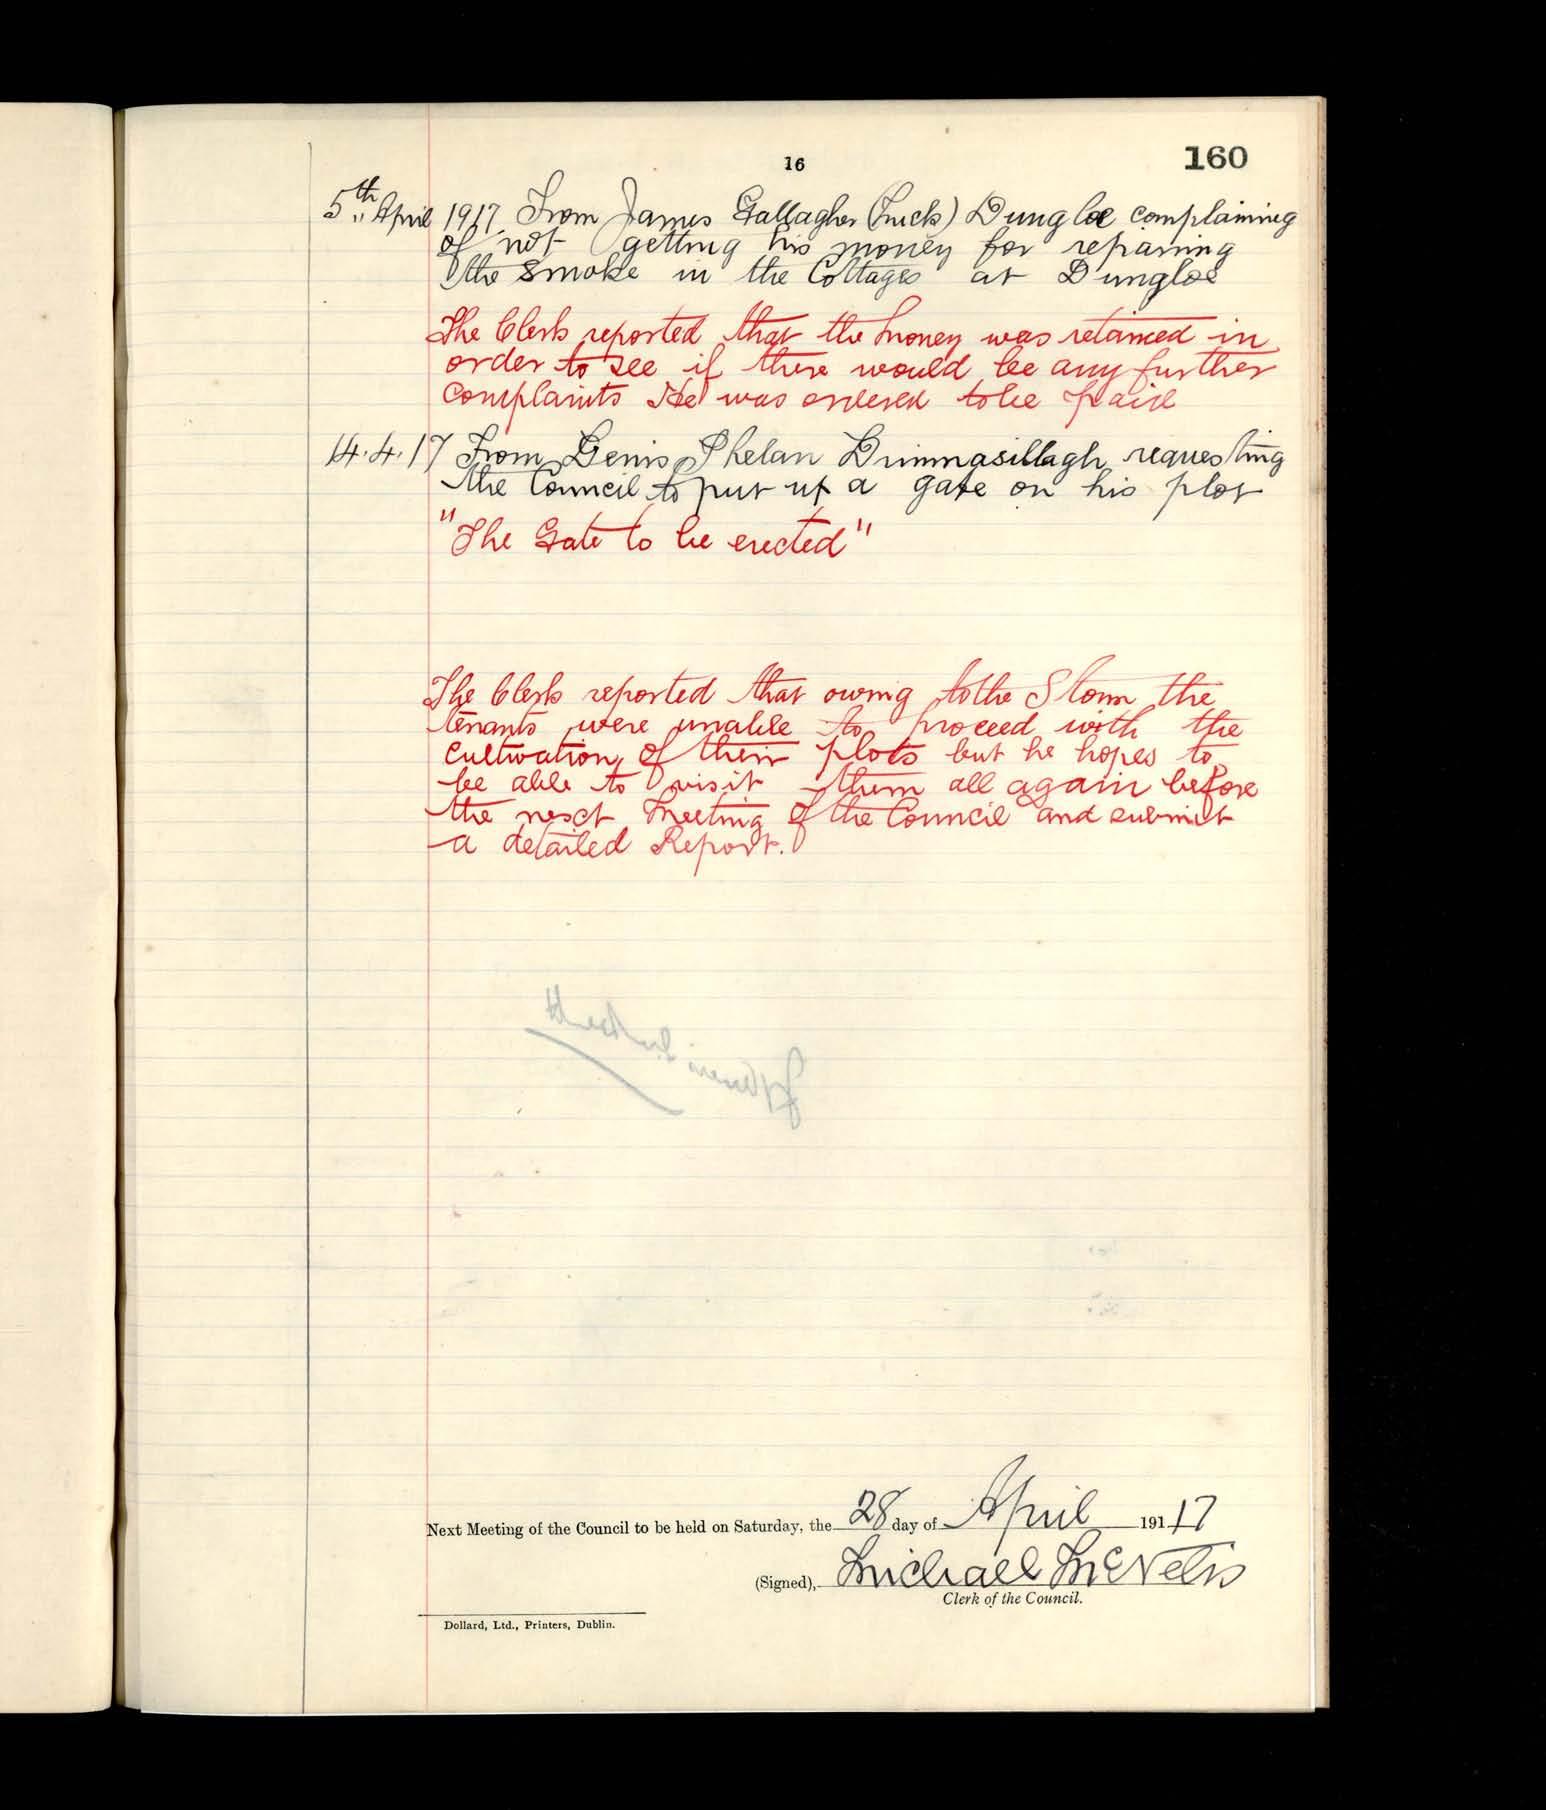 16
160
5th April 1917 From James Gallagher Dungloe complaining
of not getting his money for repairing
the smoke in the Cottages at Dungloe
The Clerk reported that the money was retained in
order to see if there would be any further
complaints He was ordered to be paid
14.4.17 From Denis Phelan Drimnasillagh requesting
the Council to put up a gate on his plot
"The Gate to be erected"
The Clerk reported that owing to the Storm the
tenants were unable to proceed with the
cultivation of their plots but he hopes to
be able to visit them all again before
the next meeting of the Council and submit
a detailed Report.
Next Meeting of the Council to be held on Saturday, the 28 day of April 191 17
(Signed), Michael McNelis
Clerk of the Council.
Dollard, Ltd., Printers, Dublin.